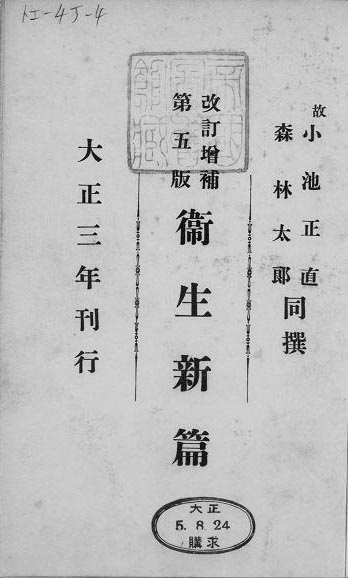 故小池正直
森林太郎
同撰
改訂增補
第五版
衞生新篇
大正三年刊行
大正
5.8.24
購求